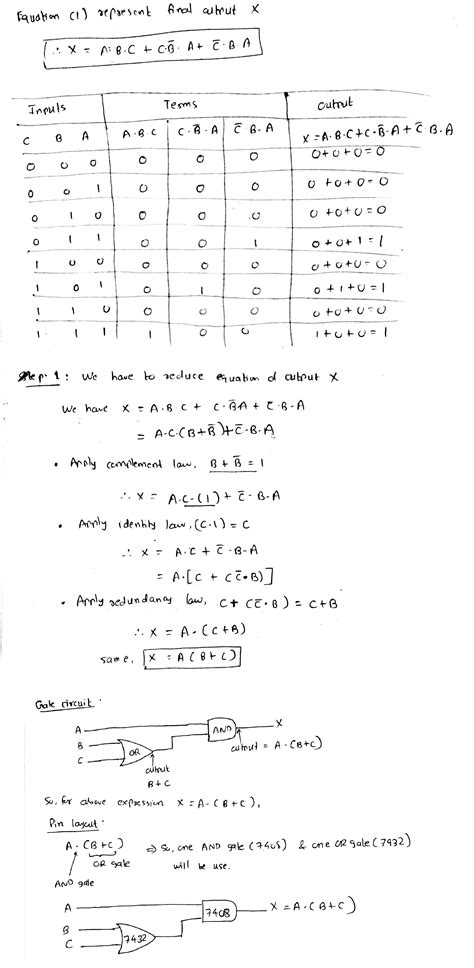 Equation (1) represent final output X
∴ X = A·B·C + C·B̄·A + C̄·B·A
Inputs Terms Output
C B A A·B·C C·B̄·A C̄·B·A X=A·B·C+C·B̄·A+C̄·B·A
0 0 0 0 0 0 0+0+0=0
0 0 1 0 0 0 0+0+0=0
0 1 0 0 0 0 0+0+0=0
0 1 1 0 0 1 0+0+1=1
1 0 0 0 0 0 0+0+0=0
1 0 1 0 1 0 0+1+0=1
1 1 0 0 0 0 0+0+0=0
1 1 1 1 0 0 1+0+0=1
Step: 1: We have to reduce equation of output X
We have X = A·B·C + C·B̄·A + C̄·B·A
= A·C·(B+B̄)+C̄·B·A
• Apply complement law, B+B̄=1
∴ X = A·C·(1)+C̄·B·A
• Apply identity law, (C·1)=C
∴ X = A·C+C̄·B·A
= A·[C+(C̄·B)]
• Apply redundancy law, C+(C̄·B)=C+B
∴ X = A·(C+B)
same, X = A(B+C)
Gate circuit:
A AND X
B OR output = A·(B+C)
C
output
B+C
So, for above expression X=A·(B+C),
Pin layout:
A·(B+C) ⇒ So, one AND gate (7408) & one OR gate (7432)
OR gate will be use.
AND gate
A 7408 X=A·(B+C)
B
C 7432